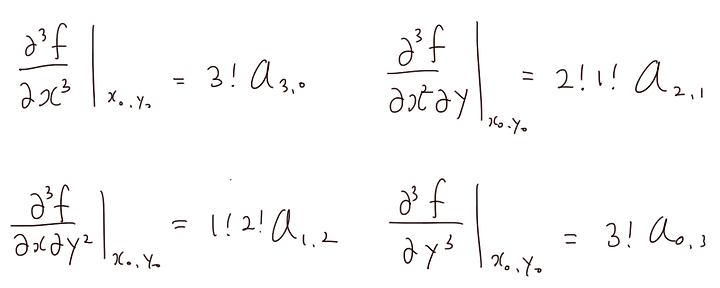 ∂³f/∂x³ |ₓ₀,ᵧ₀ = 3! a₃,₀    ∂³f/∂x²∂y |ₓ₀,ᵧ₀ = 2!1! a₂,₁
∂³f/∂x∂y² |ₓ₀,ᵧ₀ = 1!2! a₁,₂    ∂³f/∂y³ |ₓ₀,ᵧ₀ = 3! a₀,₃